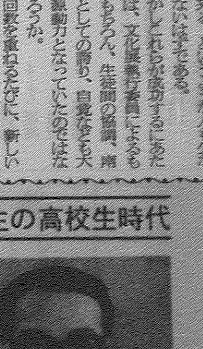 ないはずである。
かしこれらが成功するにあた
は、文化祭執行委員によるも
もちろん、生徒間の協調、南
としての誇り、自覚なども大
原動力となっていたのではな
ろうか。
回数を重ねるたびに、新しい
生の高校生時代